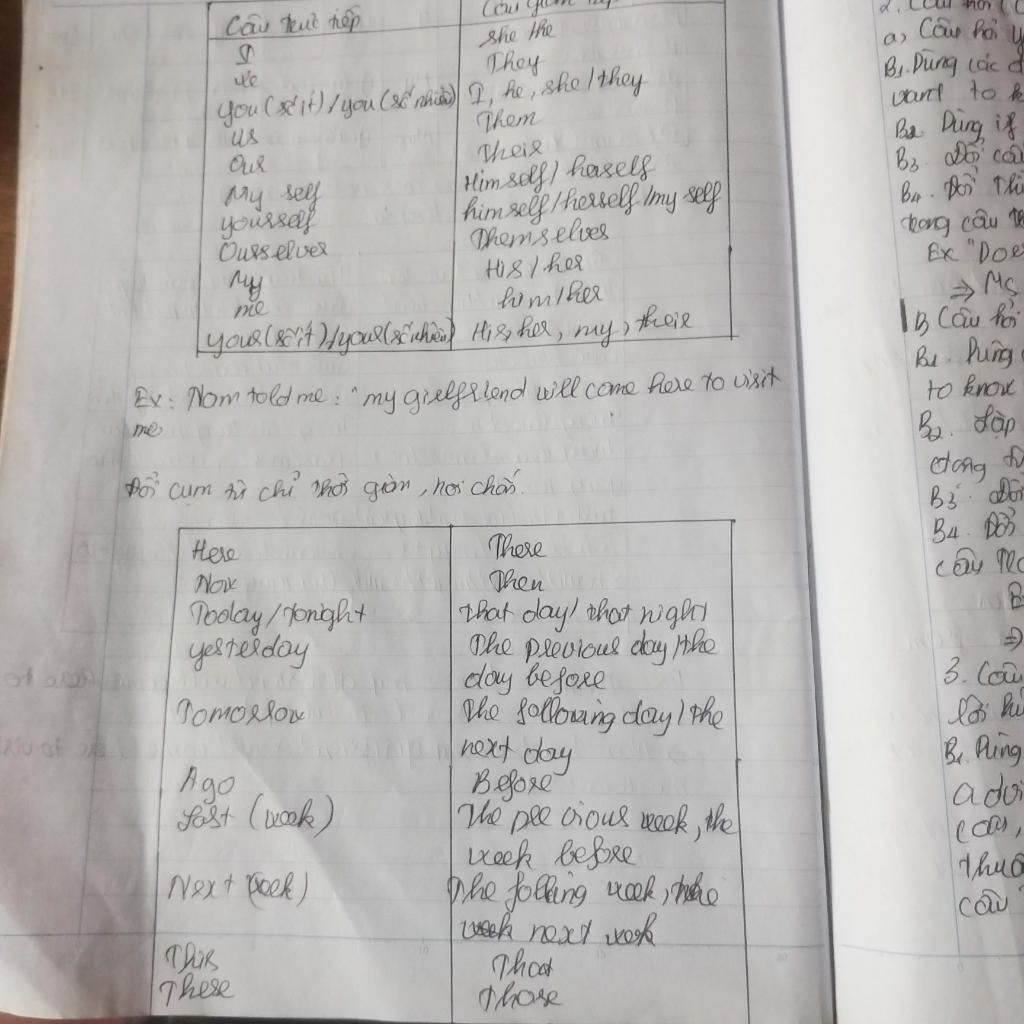 Câu trực tiếp
Câu gián tiếp
I
she the
we
They
you (số ít) / you (số nhiều)
I, he, she / they
us
Them
Our
Their
My self
Himself / herself
yourself
himself / herself / my self
Ourselves
Themselves
My
His / her
me
him / her
your (số ít) / your (số nhiều)
His, her, my, their
Ex: Nam told me: "my girlfriend will come here to visit
me
Đổi cụm từ chỉ thời gian, nơi chốn.
Here
There
Now
Then
Today / tonight
that day / that night
yesterday
The previous day / the
day before
Tomorrow
The following day / the
next day
Ago
Before
Last (week)
The pre vious week, the
week before
Next (week)
The folling week, the
week next week
This
That
These
Those
2. Câu hỏi
a, Câu hỏi
B1. Dùng các
want to
B2. Dùng if
B3. Đổi
B4. Đổi
trong câu
Ex "Does
⇒ Ms
B Câu hỏi
B1. Dùng
to know
B2. Lặp
động
B3.
B4. Đổi
câu
⇒
3. Câu
lời
B1. Dùng
câu